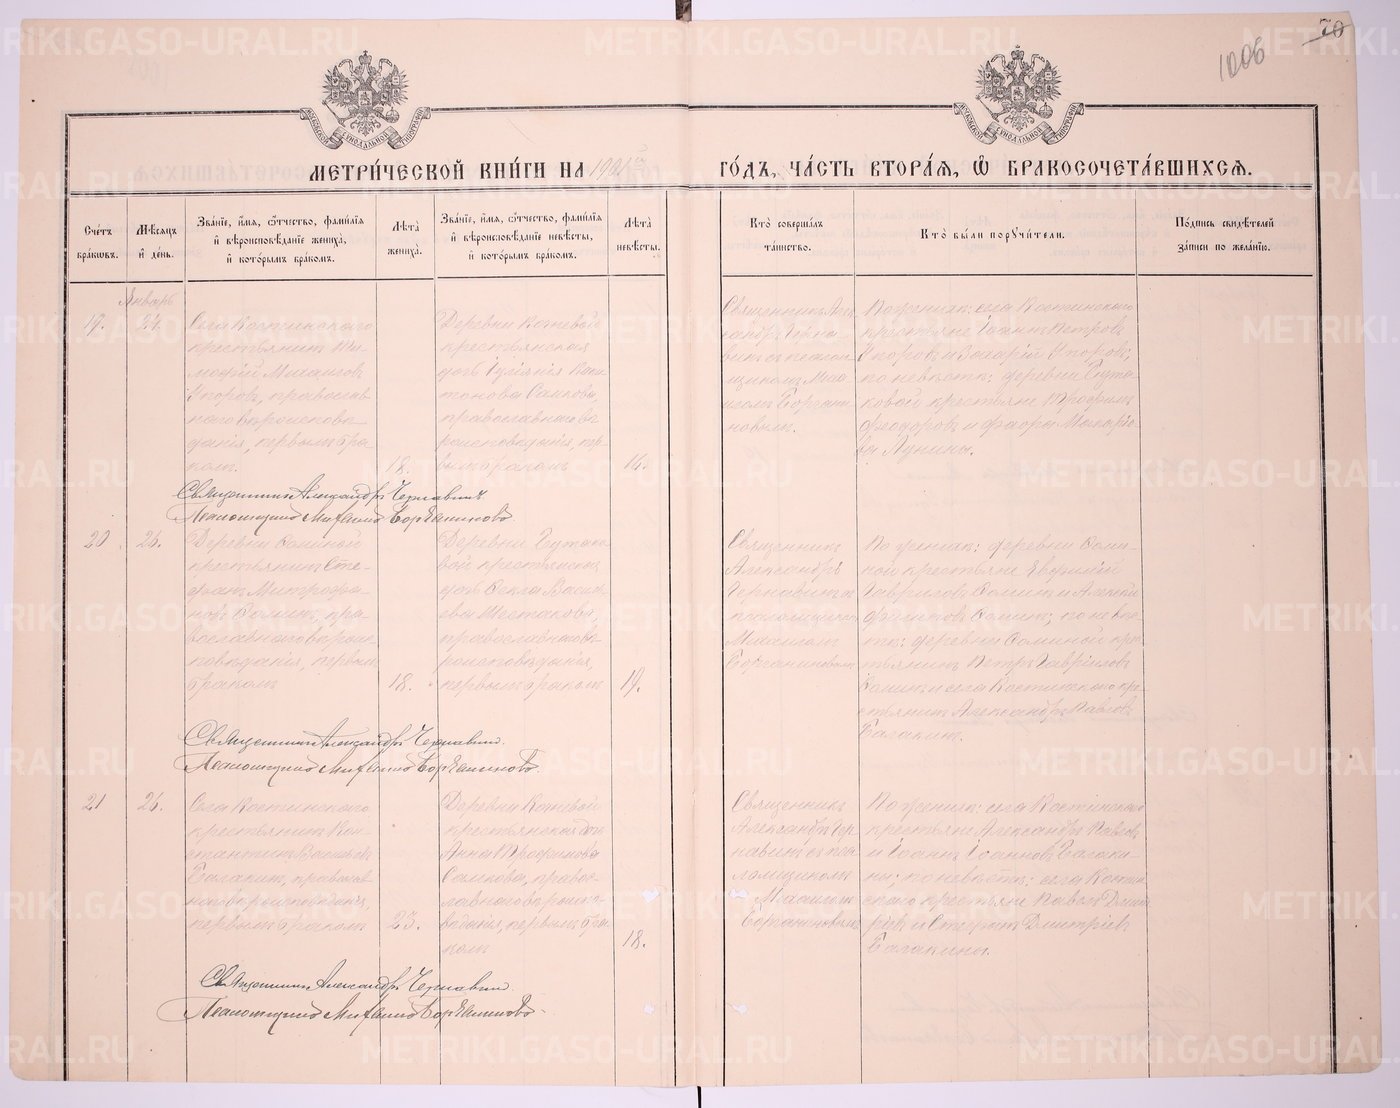 70
1006
МЕТРИ́ЧЕСКОЙ КНИ́ГИ НА 1901
ГО́ДЪ, ЧА́СТЬ ВТОРА́Ѧ, Ѽ БРАКОСОЧЕТА́ВШИХСѦ.
Сче́тъ бра́кѡвъ.
Мѣ́сѧцъ й де́нь.
Зва́нїе, и́мѧ, ѻ́тчество, фамилїѧ
й вѣроисповѣ́данїе жениха̀,
й кото́рымъ бра́комъ.
Лѣ́та жениха̀.
Зва́нїе, и́мѧ, ѻ́тчество, фами́лїѧ
й вѣроисповѣ́данїе невѣ́сты,
й кото́рымъ бра́комъ.
Лѣ́та невѣ́сты.
Кто̀ соверша́лъ
та́инство.
Кто̀ бы́ли порꙋчи́тели.
По́дпись свидѣ́телей
за́писи по жела́нїю.
Январь
19.
24.
Села Костинскаго
крестьянинъ Ти-
мофей Михаиловъ
Упоровъ, православ-
наго вѣроисповѣ-
данія, первымъ бра-
комъ.
18.
Деревни Кочевой
крестьянская
дочь
Самкова,
православнаго вѣ-
роисповѣданія, пер-
вымъ бракомъ
16.
Священникъ Алек-
сандръ Черна-
винъ съ псалом-
щикомъ Миха-
иломъ Боргани-
новымъ.
По женихѣ: села Костинскаго
крестьяне Іоаннъ Петровъ
Упоровъ и Захарій Упоровъ;
по невѣстѣ: деревни Бута-
ковой крестьяне Трофимъ
Ѳеодоровъ и
Лунины.
Священникъ Александръ Чернавинъ
Псаломщикъ Михаилъ
20
26.
Деревни Ѳоминой
крестьянинъ Сте-
фанъ Митрофа-
новъ Ѳоминъ, пра-
вославнаго вѣроис-
повѣданія, первымъ
бракомъ
18.
Деревни Бутако-
вой крестьянская
дочь Ѳекла Василь-
ева Шестакова,
православнаго вѣ-
роисповѣданія,
первымъ бракомъ
19.
Священникъ
Александръ
Чернавинъ съ
псаломщикомъ
Михаиломъ
По женихѣ: деревни Ѳоми-
ной крестьяне Евфимій
Гавриловъ Ѳоминъ и Алексѣй
Ѳоминъ; по невѣс-
тѣ: деревни Ѳоминой крес-
тьянинъ Петръ Гавриловъ
Ѳоминъ и села Костинскаго кре-
стьянинъ Александръ Павловъ
Балакинъ.
Священникъ Александръ Чернавинъ
Псаломщикъ Михаилъ
21
26.
Села Костинскаго
крестьянинъ Кон-
стантинъ Васильевъ
Балакинъ, православ-
наго вѣроисповѣданія,
первымъ бракомъ
23.
Деревни Кочевой
крестьянская дочь
Анна Трофимова
Самкова, правос-
лавнаго вѣроиспо-
вѣданія, первымъ бра-
комъ
18.
Священникъ
Александръ Чер-
навинъ съ пса-
ломщикомъ
Михаиломъ
По женихѣ: села Костинскаго
крестьяне Александръ Павловъ
и Іоаннъ Іоанновъ Балаки-
ны; по невѣстѣ: села Костин-
скаго крестьяне Павелъ Дмит-
ріев и Степанъ Дмитріевъ
Балакины.
Священникъ Александръ Чернавинъ
Псаломщикъ Михаилъ
METRIKI.GASO-URAL.RU